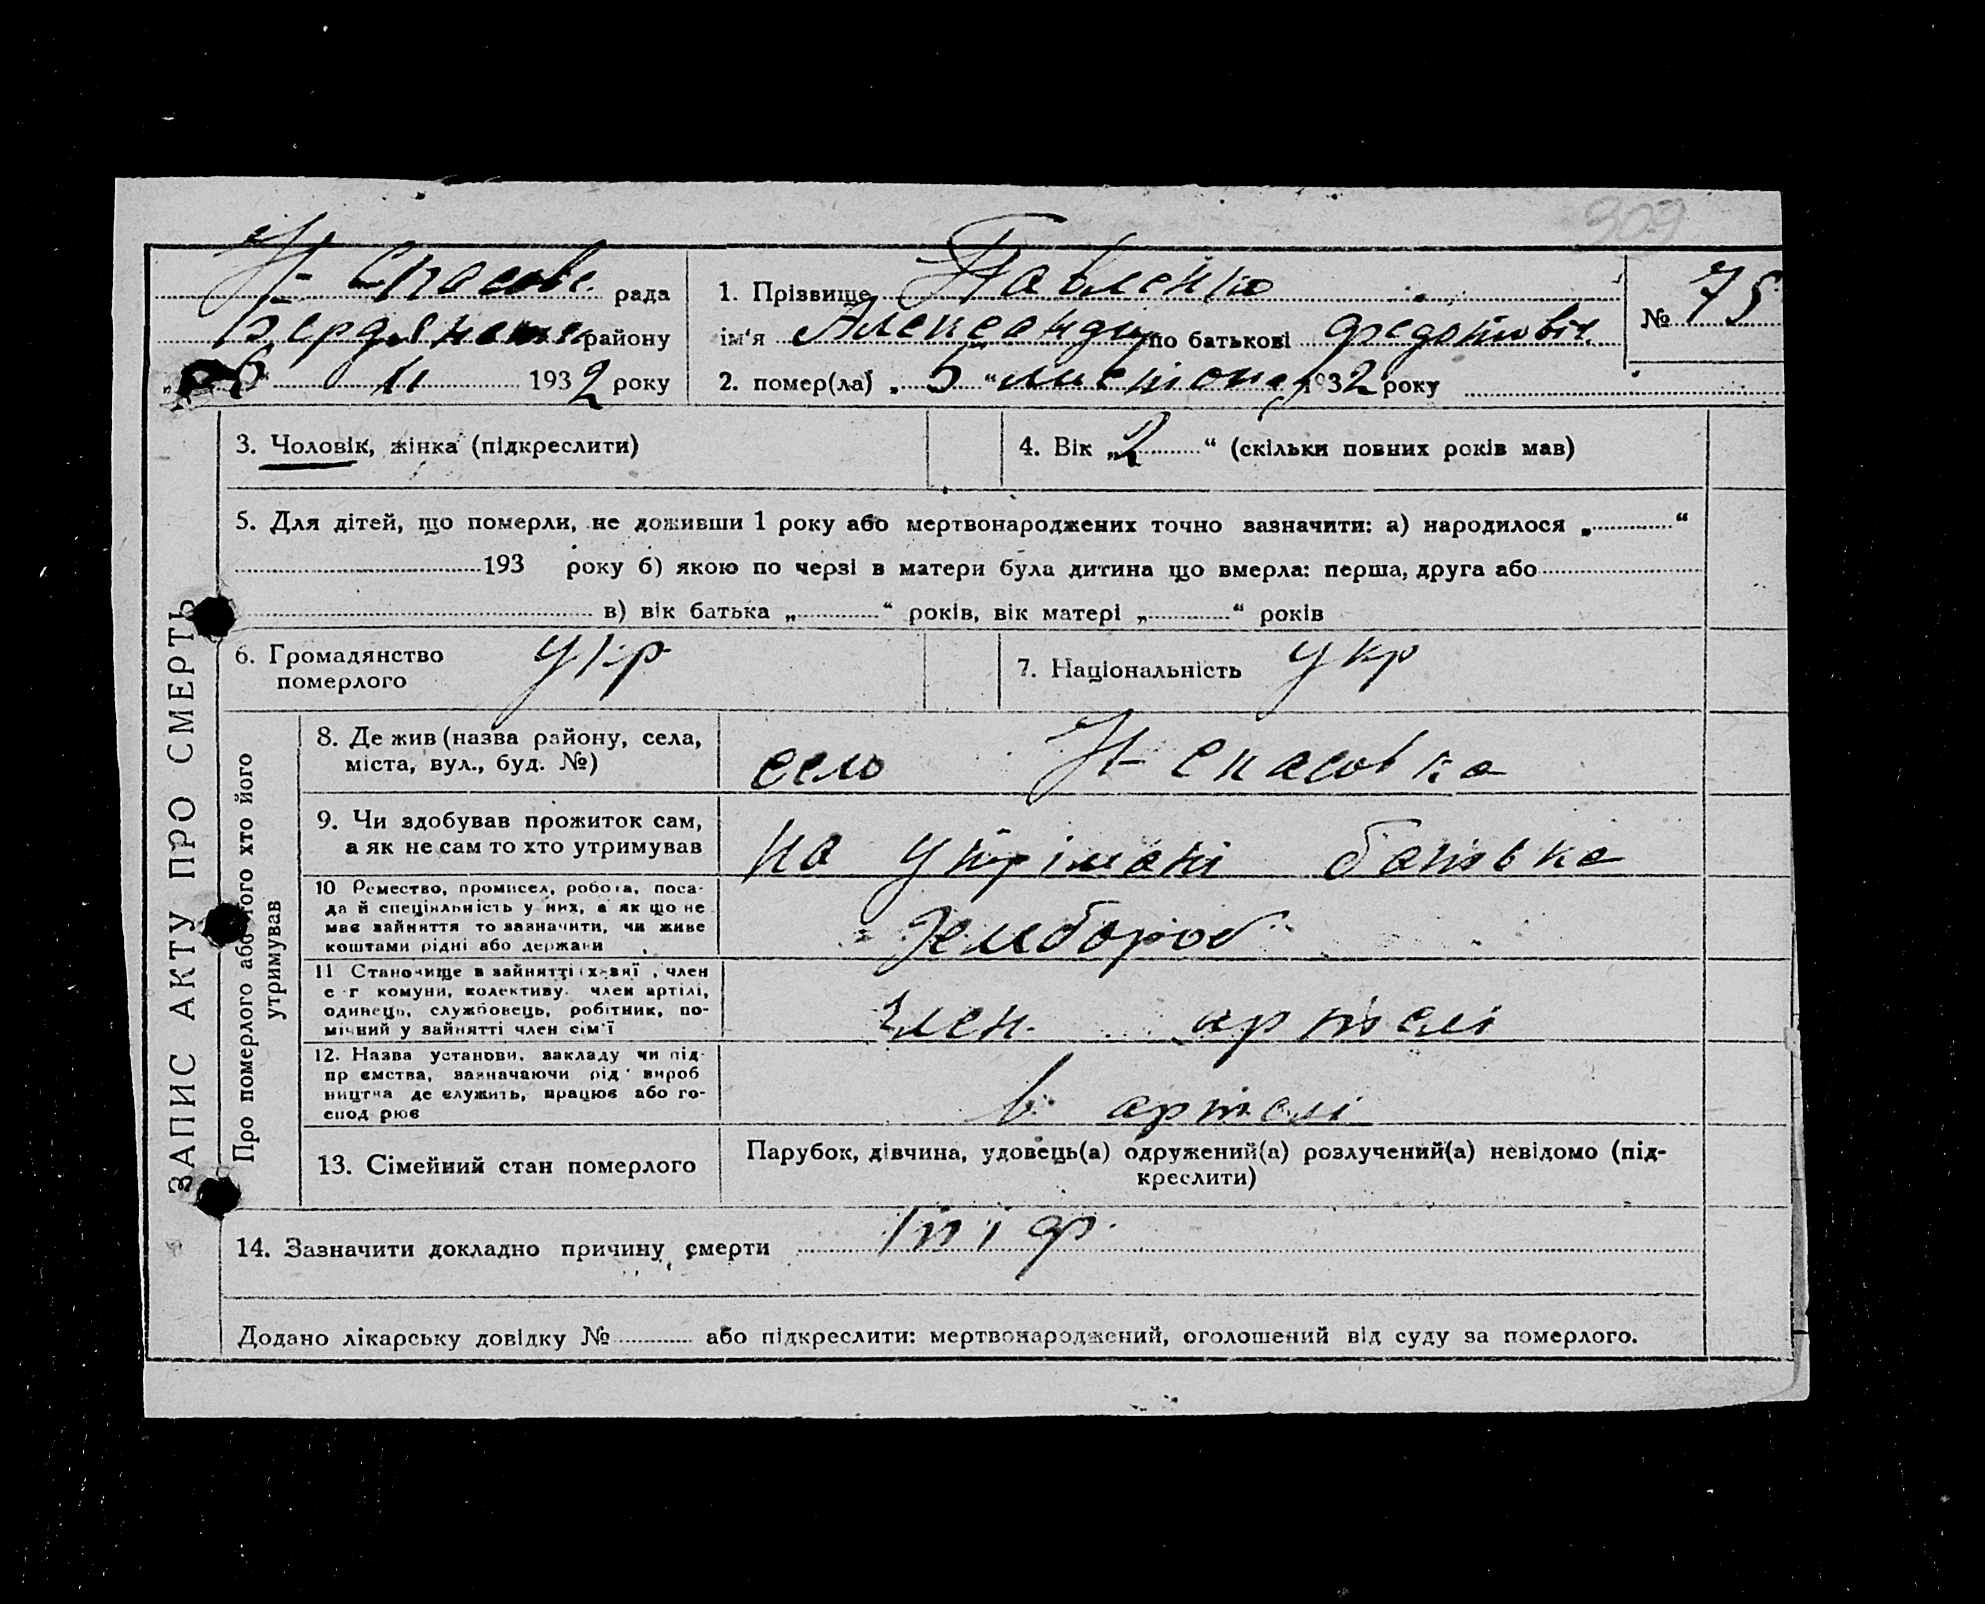 309
Н-Спасовс. рада
Бердянськ району
6 11 1932 року
1. Прізвище Павленко
ім'я Александр по батькові Федотовіч
2. помер(ла) „5" листопад 1932 року
№ 75
3. Чоловік, жінка (підкреслити)
4. Вік „2" (скільки повних років мав)
5. Для дітей, що померли, не доживши 1 року або мертвонароджених точно зазначити: а) народилося „ "
193 року б) якою по черзі в матери була дитина що вмерла: перша, друга або
в) вік батька „ " років, вік матері „ " років
6. Громадянство
померлого
укр
7. Національність укр
8. Де жив (назва району, села,
міста, вул., буд. №)
село Н-Спасовка
9. Чи здобував прожиток сам,
а як не сам то хто утримував
на утрімані батька
10 Ремество, промисел, робота, поса-
да й спеціяльність у них, а як що не
має зайняття то зазначити, чи живе
коштами рідні або держави
11 Становище в зайнятті , член
с-г комуни, колективу, член артілі,
одинець, службовець, робітник, по-
мічний у зайнятті член сім'ї
член артелі
12. Назва установи, закладу чи під-
приємства, зазначаючи рід вироб
ництва де служить, працює або го-
сподарює
в артелі
13. Сімейний стан померлого
Парубок, дівчина, удовець(а) одружений(а) розлучений(а) невідомо (під-
креслити)
14. Зазначити докладно причину смерти тіф.
Додано лікарську довідку № або підкреслити: мертвонароджений, оголошений від суду за померлого.
ЗАПИС АКТУ ПРО СМЕРТЬ
Про померлого або того хто його
утримував